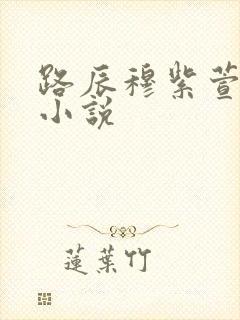 路辰穆紫萱
小說
蓮葉竹